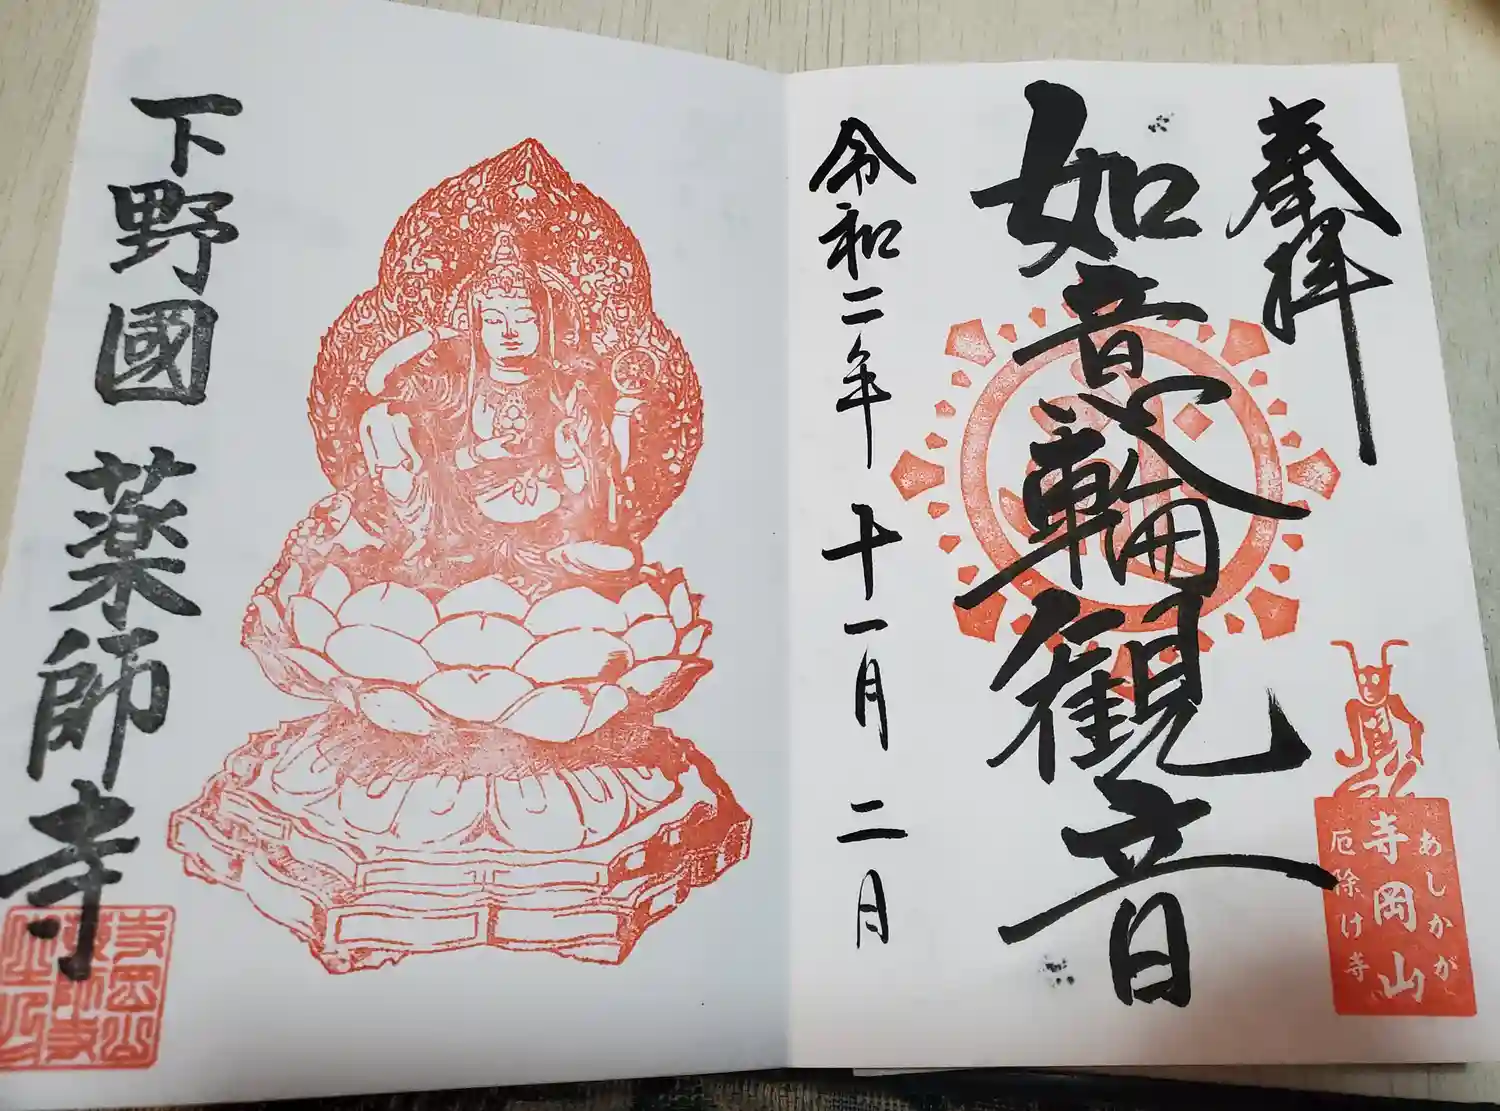 奉拝
如意輪観音
令和二年 十一月 二日
あしかが
寺岡山
厄除け寺
下野國 薬師寺
寺岡山
薬師寺